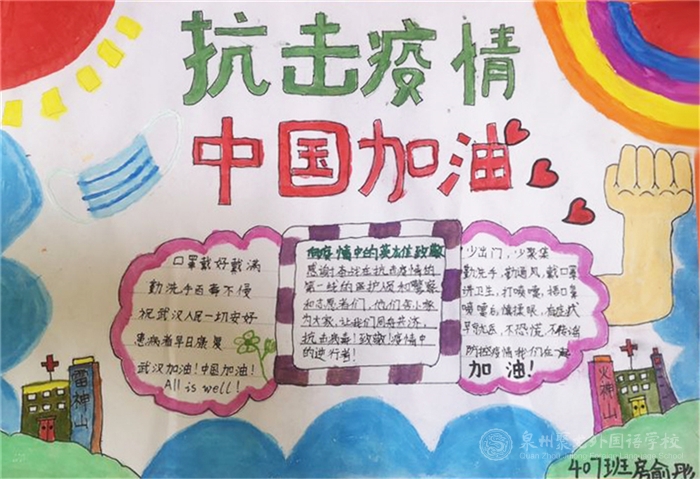 抗击疫情
中国加油
口罩戴好戴满
勤洗手百毒不侵
祝武汉人民一切安好
患病者早日康复
武汉加油!中国加油!
All is well!
向疫情中的英雄致敬
感谢奋战在抗击疫情的
第一线的医护人员和警察
和志愿者们,他们舍小家
为大家,让我们同舟共济,
抗击病毒!致敬!疫情中
的逆行者!
少出门,少聚集
勤洗手,勤通风,戴口罩
讲卫生,打喷嚏,捂口鼻
喷嚏后慎揉眼,有症状
早就医,不恐慌,不传谣
防控疫情我们在
加油!
雷神山
火神山
泉州聚龙外国语学校
407班房俞彤